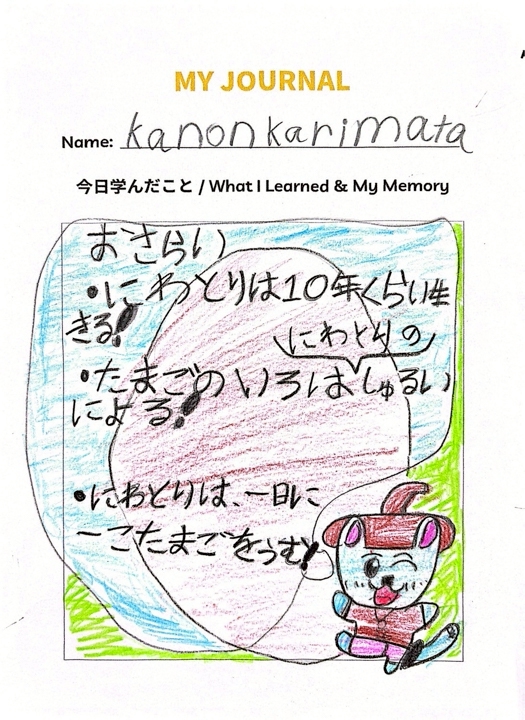 MY JOURNAL
Name: kanon karimata
今日学んだこと / What I Learned & My Memory
おさらい
・にわとりは10年くらい生
きる!
にわとりの
・たまごのいろはしゅるい
による!
・にわとりは、一日に
一こたまごをうむ!